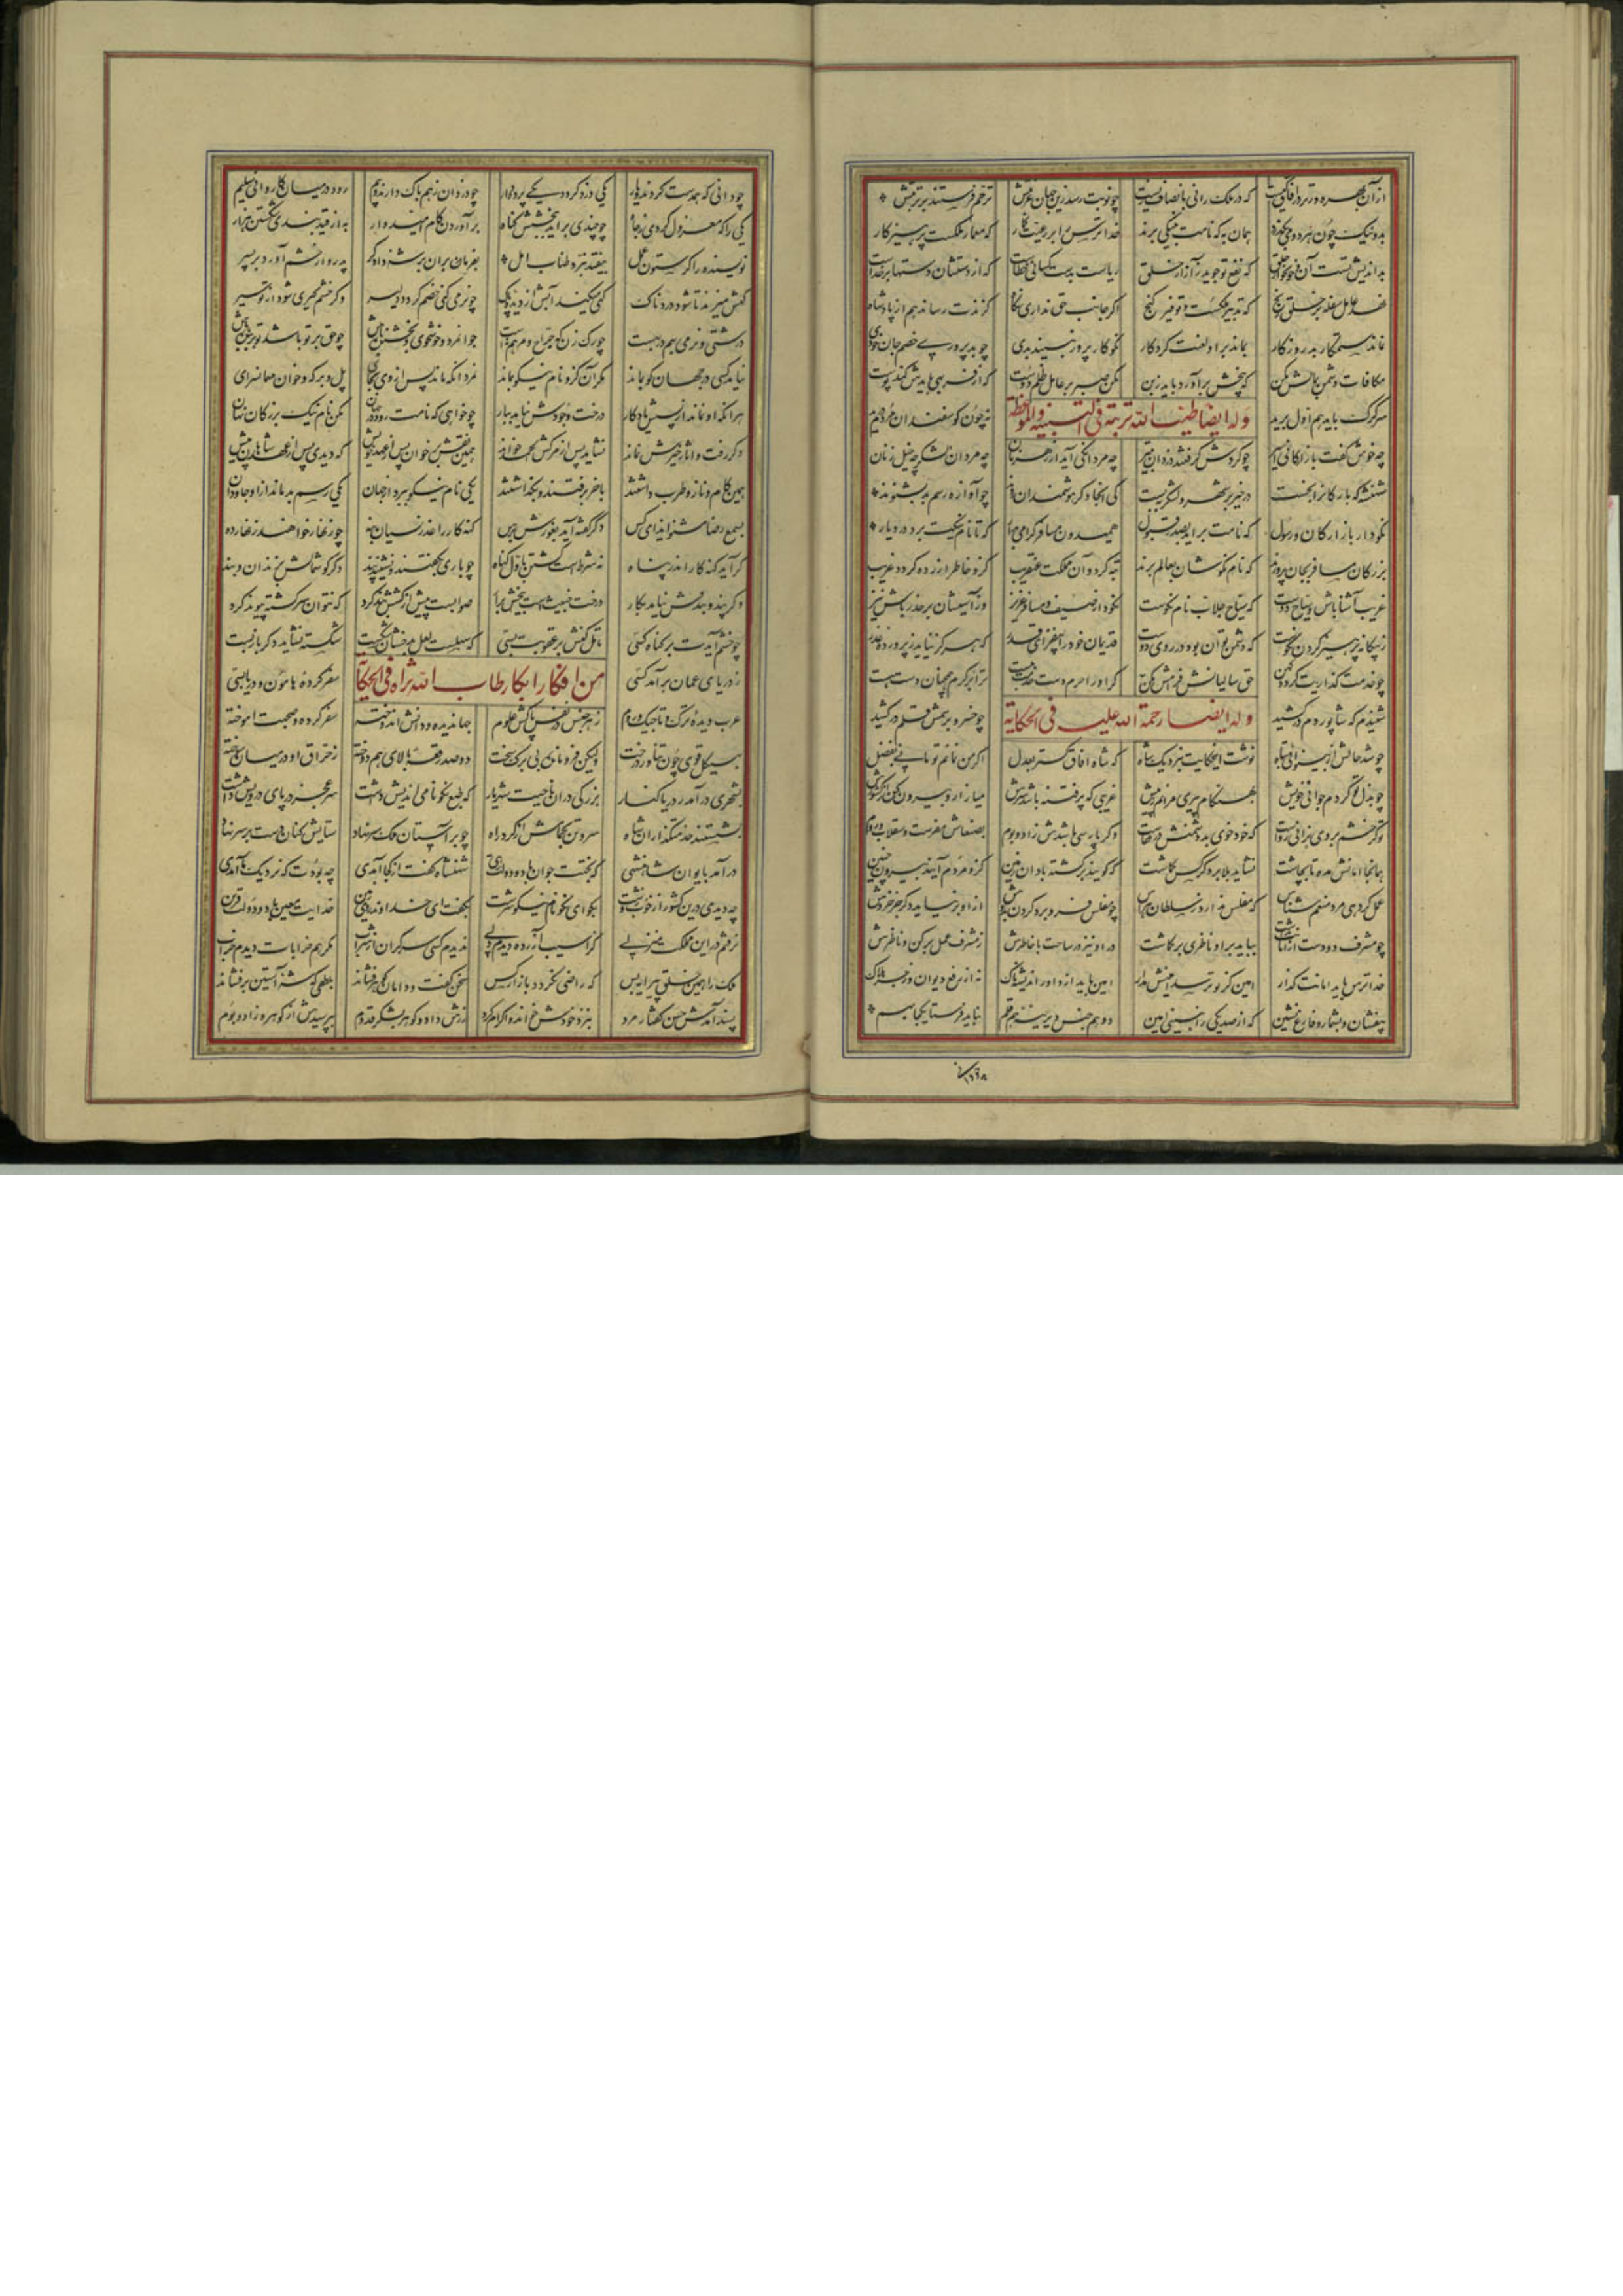 از آن بهره ورتر در آفاق نیست که در ملک رانی بانصاف زیست چو نوبت رسد زین جهان غربتش ترحم فرستند بر تربتش
بد و نیک چون هر دو می بگذرد همان به که نامت به نیکی برند خدا ترس را بر رعیت گمار که معمار ملکست پرهیزکار
بد اندیش تست آن و خونخوار خلق که نفع تو جوید در آزار خلق ریاست بدست کسانی خطاست که از دستشان دستها بر خداست
چو بد پروری خصم جان خودی
نماند ستمکار بد روزگار بماند برو لعنت کردگار نکوکار پرور نبیند بدی
مکافات دشمن بمالش مکن که بیخش برآورد باید ز بن مکن صبر بر عامل ظلم دوست که از فربهی بایدش کند پوست
سر گرگ باید هم اول برید نه چون گوسفندان مردم درید
وله ایضا طیب الله تربته فی التنبیه والموعظة
چه خوش گفت بازارگانی اسیر چو گردش گرفتند دزدان بتیر چو مردانگی آید از رهزنان چه مردان لشکر چه خیل زنان
شهنشه که بازارگانرا بخست در خیر بر شهر و لشکر ببست کی آنجا دگر هوشمندان روند چو آوازه رسم بد بشنوند
نکودار بازارگان و رسول که نامت برآید بصدر قبول
بزرگان مسافر بجان پرورند که نام نکوشان بعالم برند تبه گردد آن مملکت عنقریب کزو خاطر آزرده گردد غریب
غریب آشنا باش و سیاح دوست که سیاح جلاب نام نکوست نکو دار ضیف و مسافر عزیز وز آسیبشان بر حذر باش نیز
ز بیگانه پرهیز کردن نکوست که دشمن توان بود در روی دوست قدیمان خود را بیفزای قدر که هرگز نیاید ز پرورده غدر
چو خدمت گذاریت گردد کهن حق سالیانش فرامش مکن گر او را هرم دست خدمت ببست ترا بر کرم همچنان دست هست
وله ایضا رحمة الله علیه فی الحکایة
شنیدم که شاپور دم در کشید چو خسرو برسمش قلم در کشید
چو شد حالش از بینوایی تباه نوشت این حکایت بنزدیک شاه که شاه آفاق گستر بعدل اگر من نمانم تو مانی بفضل
چو بذل تو کردم جوانی خویش بهنگام پیری مرانم ز پیش غریبی که پر فتنه باشد سرش میازار و بیرون کن از کشورش
تو گر خشم بر وی برانی رواست که خود خوی بد دشمنش در قفاست و گر پارسی باشدش زاد و بوم بصنعاش مفرست و سقلاب و روم
نشاید بلا بر دگر کس گماشت که گویند برگشته باد آن زمین کزو مردم آیند بیرون چنین
عمل گر دهی مرد منعم شناس که مفلس ندارد ز سلطان هراس چو مفلس فرو برد گردن بدوش ازو بر نیاید دگر جز خروش
چو مشرف دو دست از امانت بداشت بباید برو ناظری بر گماشت ور او نیز در ساخت با خاطرش ز مشرف عمل بر کن و ناظرش
خدا ترس باید امانت گذار امین کز تو ترسد امینش مدار امین باید از داور اندیشناک نه از رفع دیوان و زجر هلاک
بیفشان و بشمار و فارغ نشین که از صد یکی را نبینی امین دو همجنس دیرینه هم قلم نباید فرستاد یکجا بهم
چه دانی که همدست گردند و یار یکی دزد گردد یکی پرده دار چو دزدان ز هم باک دارند و بیم رود در میان کاروانی سلیم
یکی را که معزول کردی ز جاه چو چندی برآید ببخشش گناه برآوردن کام امیدوار به از قید بندی شکستن هزار
نویسنده را گر ستون عمل بیفتد نبرد طناب امل بفرمان بران بر شه دادگر پدر وار خشم آورد بر پسر
گهش میزند تا شود دردناک گهی میکند آبش از دیده پاک چو نرمی کنی خصم گردد دلیر و گر خشم گیری شود از تو سیر
درشتی و نرمی بهم در بهست چو رگ زن که جراح و مرهم نهست جوانمرد و خوشخوی و بخشنده باش چو حق بر تو باشد تو بر بنده پاش
نیامد کسی در جهان کو بماند مگر آن کزو نام نیکو بماند نمرد آنکه ماند پس از وی بجای پل و برکه و خوان و مهمانسرای
هر آنکو نماند از پسش یادگار درخت وجودش نیامد ببار چو خواهی که نامت بود جاودان مکن نام نیک بزرگان نهان
و گر رفت و آثار خیرش نماند نشاید پس از مرگش الحمد خواند همین نقش بر خوان پس از عهد خویش که دیدی پس از عهد شاهان پیش
همین کام و ناز و طرب داشتند بآخر برفتند و بگذاشتند یکی نام نیکو ببرد از جهان یکی رسم بد ماند ازو جاودان
بسمع رضا مشنو ایذای کس و گر گفته آید بغورش برس گنه کار را عذر نسیان بنه چو زنهار خواهند زنهار ده
گر آید گنه کار اندر پناه نه شرطست کشتن باول گناه چو باری بگفتند و نشنید پند دگر گوشمالش بزندان و بند
و گر پند و بندش نیاید بکار درخت خبیثست بیخش برآر
چو خشم آیدت بر گناه کسی تامل کنش در عقوبت بسی که سهلست لعل بدخشان شکست شکسته نشاید دگر بار بست
من افکار ابکار طاب الله ثراه فی الحکایة
ز دریای عمان برآمد کسی سفر کرده هامون و دریا بسی
عرب دیده و ترک و تاجیک و روم ز هر جنس در نفس پاکش علوم جهاندیده و دانش اندوخته سفر کرده و صحبت آموخته
بهیکل قوی چون تناور درخت ولیکن فرومانده بی برگ سخت دو صد رقعه بالای هم دوخته ز حراق او در میان سوخته
بشهری درآمد ز دریا کنار بزرگی در آن ناحیت شهریار که طبع نکونامی اندیش داشت سر عجز در پای درویش داشت
بشستند خدمتگذاران شاه سر و تن بحمامش از گرد راه چو بر آستان ملک سر نهاد ستایش کنان دست بر بر نهاد
درآمد بایوان شاهنشهی که بختت جوان باد و دولت رهی شهنشاه گفت از کجا آمدی چه بودت که نزدیک ما آمدی
چه دیدی درین کشور از خوب و زشت بگو ای نکونام نیکو سرشت بگفت ای خداوند روی زمین خدایت معین باد و دولت قرین
نرفتم درین مملکت منزلی کز آسیب آزرده دیدم دلی ندیدم کسی سرگران از شراب مگر هم خرابات دیدم خراب
ملک را همین خلق پیرایه بس که راضی نگردد بآزار کس سخن گفت و دامان گوهر فشاند بلطفی که شه آستین بر فشاند
پسند آمدش حسن گفتار مرد بنزد خودش خواند و اکرام کرد زرش داد و گوهر بشکر قدوم بپرسیدش از گوهر و زاد و بوم